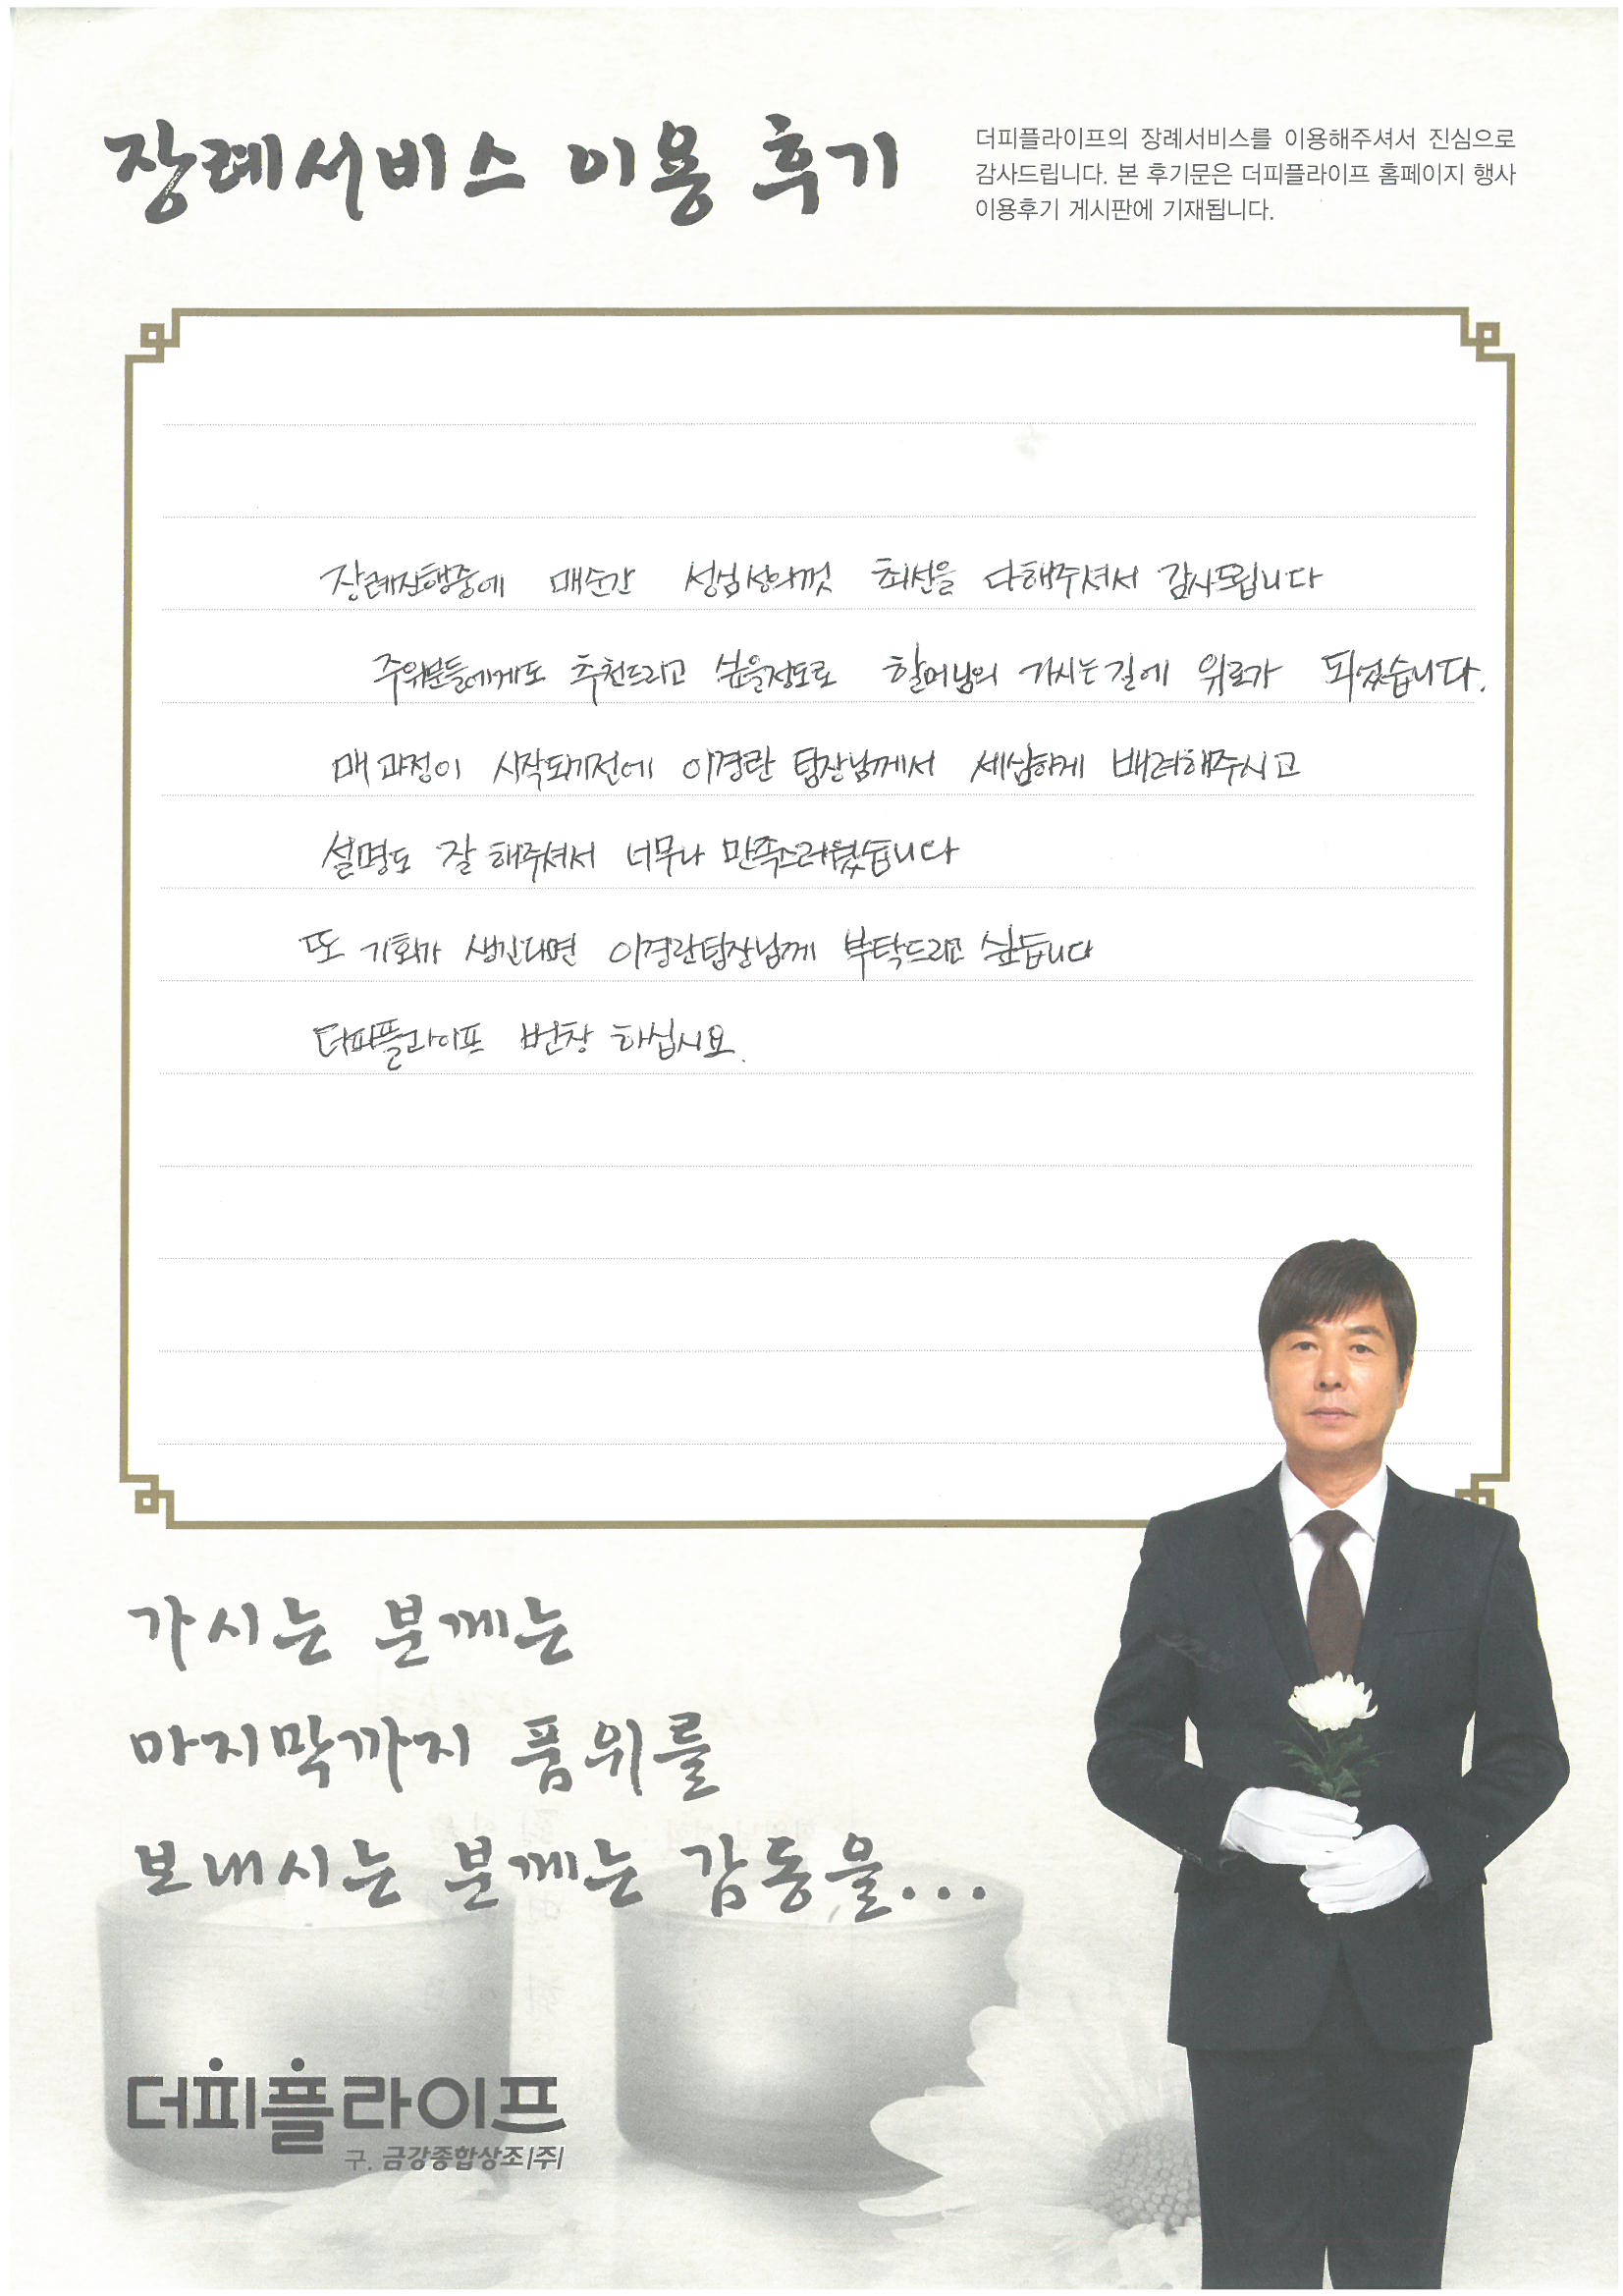 장례서비스 이용 후기
더피플라이프의 장례서비스를 이용해주셔서 진심으로
감사드립니다. 본 후기문은 더피플라이프 홈페이지 행사
이용후기 게시판에 기재됩니다.
장례진행중에 매순간 성심성의껏 최선을 다해주셔서 감사드립니다
주위분들에게도 추천드리고 싶을정도로 할머님의 가시는길에 위로가 되었습니다.
매 과정이 시작되기전에 이경란 팀장님께서 세심하게 배려해주시고
설명도 잘 해주셔서 너무나 만족스러웠습니다
또 기회가 생긴다면 이경란팀장님께 부탁드리고 싶습니다
더피플라이프 번창 하십시요.
가시는 분께는
마지막까지 품위를
보내시는 분께는 감동을...
더피플라이프
구. 금강종합상조|주|